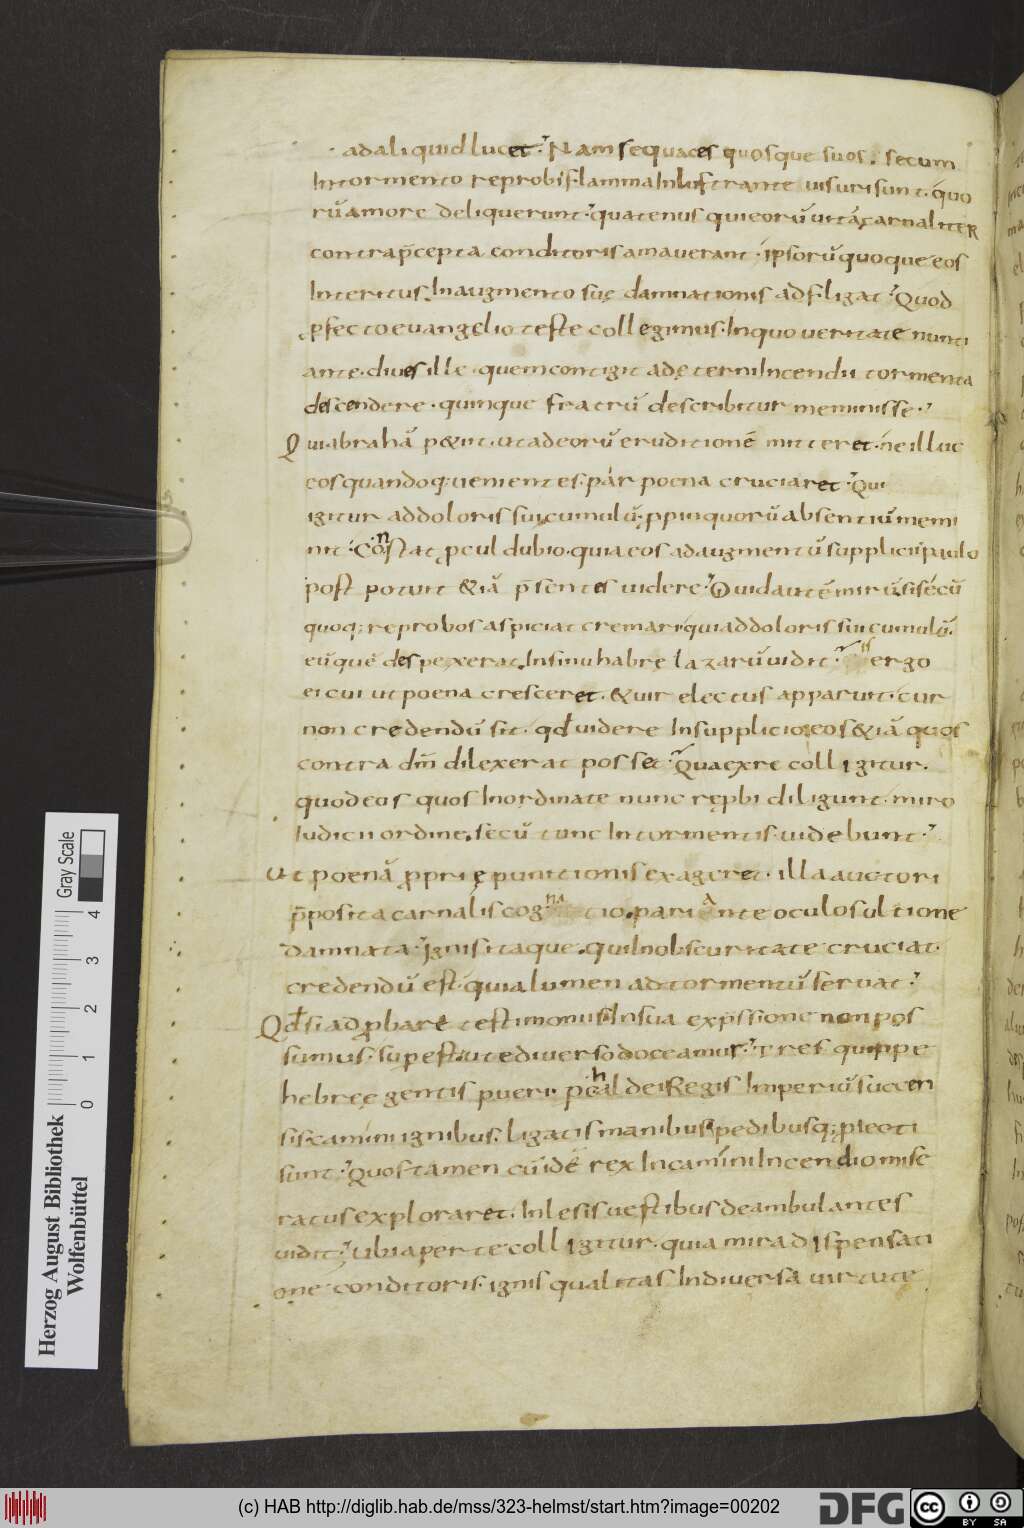 ad aliquid lucet. Nam sequaces quosque suos. secum
In tormento reprobis flamma Inluftrante uisuri sunt. quo
rū amore deliquerunt. quatenus qui eorū uitā carnaliter
contra p̄cepta conditoris amauerant. ipsorū quoque eos
Interitus. In augmento suę damnationis adfligat. Quod
ꝓfecto euangelio tefte collegimus. In quo ueritate nunti
ante. diues ille. quem contigit ad ęterni Incendii tormenta
descendere. quinque fratrū describitur meminisse.
Qui abrahā p&iit. ut ad eorū eruditionē mitteret. ne illuc
eos quandoq; uenientes. par poena cruciaret. Qui
igitur ad doloris sui cumulū. ꝓpinquorū absentiū memi
nit. Conftat ꝓcul dubio. quia eos ad augmentū supplicii paulo
poft potuit &iā p̄sentes uidere. Quid autē mirū. si secū
quoq; reprobos aspiciat cremari. qui ad doloris sui cumulū.
eū quē despexerat. In sinu habrę lazarū uidit. Si ergo
ei cui ut poena cresceret. & uir electus apparuit. cur
non credendū sit. qđ uidere In supplicio. eos &iā quos
contra dm̄ dilexerat posset. Qua ex re colligitur.
quod eis quos Inordinate nunc ręp̱bi diligunt. miro
Iudicii ordine. secū tunc In tormentis uidebunt.
Ut poenā ꝓprię punitionis exageret. illa auctori
p̄posita carnalis cognatio. pari Ante oculos ultione
damnata. Ignis itaque. qui In obscuritate cruciat.
credendū eft. quia lumen ad tormentū seruat.
Qđ si ad ꝓbare teftimoniis In sua exp̄ssione non pos
sumus. supeft. ut e diuerso doceamur. Tres quippe
hebreę gentis pueri. p chaldei Regis Imperiū succen
sis camini ignibus. ligatis manibus pedibusq; ꝓiecti
sunt. Quos tamen cū idē rex In camini Incendio mise
ratus exploraret. Inlesis ueftibus deambulantes
uidit. Ubi aperte colligitur. quia mira dispensati
one conditoris. ignis qualitas In diuersa uirtute
Herzog August Bibliothek
Wolfenbüttel
Gray Scale
0 1 2 3 4
(c) HAB http://diglib.hab.de/mss/323-helmst/start.htm?image=00202
DFG
cc BY SA